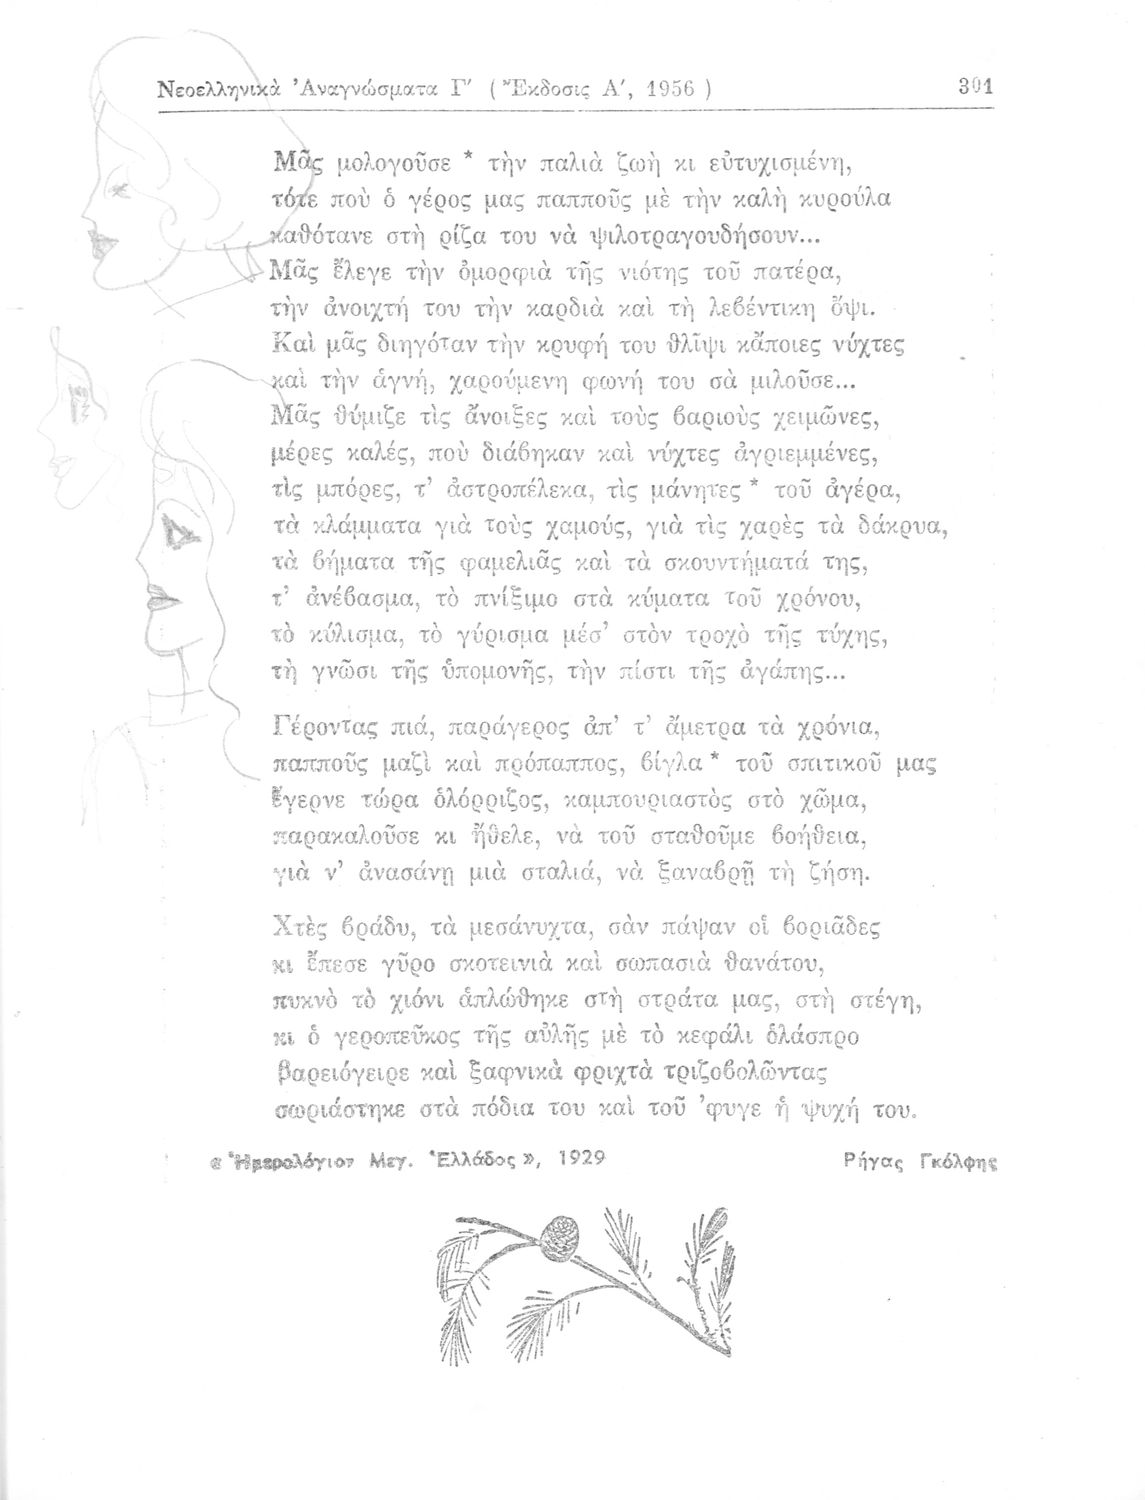 Νεοελληνικὰ Ἀναγνώσματα Γ΄ ( Ἔκδοσις Α΄, 1956 ) 301
Μᾶς μολογοῦσε * τὴν παλιὰ ζωὴ κι εὐτυχισμένη,
τότε ποὺ ὁ γέρος μας παπποῦς μὲ τὴν καλὴ κυρούλα
καθότανε στὴ ρίζα του νὰ ψιλοτραγουδήσουν...
Μᾶς ἔλεγε τὴν ὀμορφιὰ τῆς νιότης τοῦ πατέρα,
τὴν ἀνοιχτή του τὴν καρδιὰ καὶ τὴ λεβέντικη ὄψι.
Καὶ μᾶς διηγόταν τὴν κρυφή του θλῖψι κἄποιες νύχτες
καὶ τὴν ἁγνή, χαρούμενη φωνή του σὰ μιλοῦσε...
Μᾶς θύμιζε τὶς ἄνοιξες καὶ τοὺς βαριοὺς χειμῶνες,
μέρες καλές, ποὺ διάβηκαν καὶ νύχτες ἀγριεμμένες,
τὶς μπόρες, τ' ἀστροπέλεκα, τὶς μάνητες * τοῦ ἀγέρα,
τὰ κλάμματα γιὰ τοὺς χαμούς, γιὰ τὶς χαρὲς τὰ δάκρυα,
τὰ βήματα τῆς φαμελιᾶς καὶ τὰ σκουντήματά της,
τ' ἀνέβασμα, τὸ πνίξιμο στὰ κύματα τοῦ χρόνου,
τὸ κύλισμα, τὸ γύρισμα μέσ' στὸν τροχὸ τῆς τύχης,
τὴ γνῶσι τῆς ὑπομονῆς, τὴν πίστι τῆς ἀγάπης...
Γέροντας πιά, παράγερος ἀπ' τ' ἄμετρα τὰ χρόνια,
παπποῦς μαζὶ καὶ πρόπαππος, βίγλα * τοῦ σπιτικοῦ μας
ἔγερνε τώρα ὁλόρριζος, καμπουριαστὸς στὸ χῶμα,
παρακαλοῦσε κι ἤθελε, νὰ τοῦ σταθοῦμε βοήθεια,
γιὰ ν' ἀνασάνῃ μιὰ σταλιά, νὰ ξαναβρῇ τὴ ζήση.
Χτὲς βράδυ, τὰ μεσάνυχτα, σὰν πάψαν οἱ βοριᾶδες
κι ἔπεσε γῦρο σκοτεινιὰ καὶ σωπασιὰ θανάτου,
πυκνὸ τὸ χιόνι ἁπλώθηκε στὴ στράτα μας, στὴ στέγη,
κι ὁ γεροπεῦκος τῆς αὐλῆς μὲ τὸ κεφάλι ὁλάσπρο
βαρειόγειρε καὶ ξαφνικὰ φριχτὰ τριζοβολῶντας
σωριάστηκε στὰ πόδια του καὶ τοῦ 'φυγε ἡ ψυχή του.
« Ἡμερολόγιον Μεγ. Ἑλλάδος », 1929 Ρήγας Γκόλφης